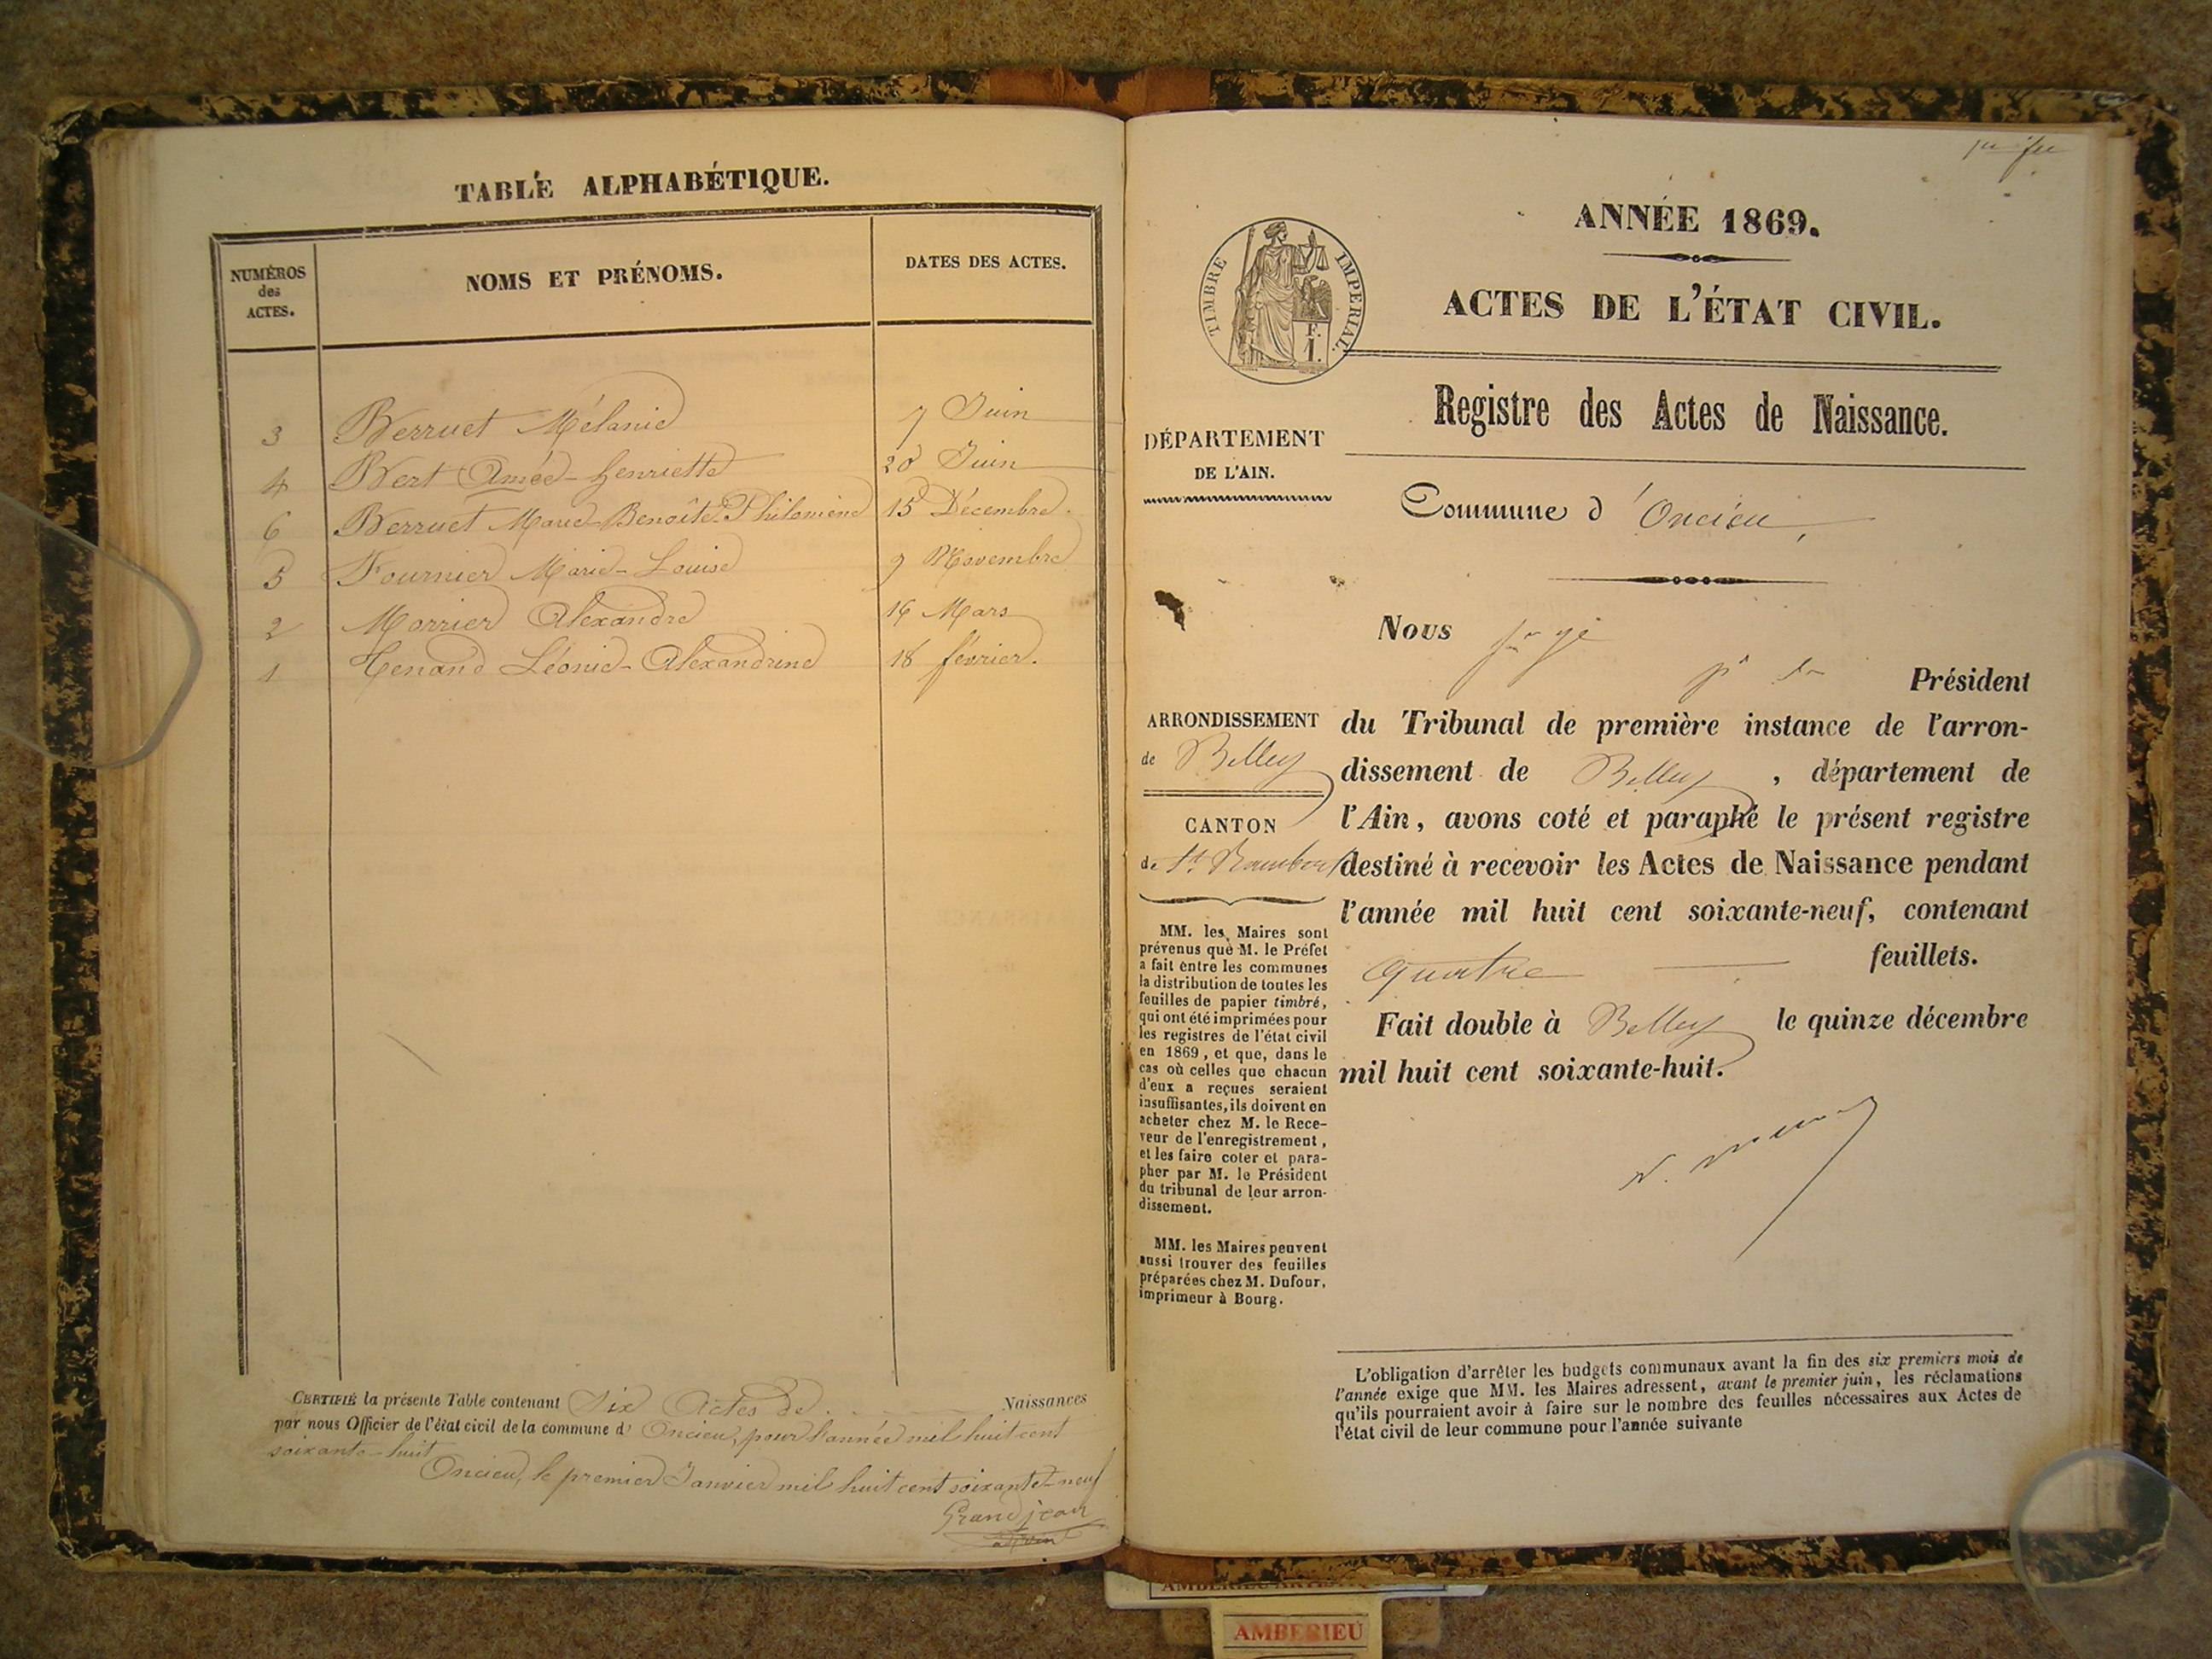 TABLE ALPHABÉTIQUE.
NUMÉROS des ACTES.
NOMS ET PRÉNOMS.
DATES DES ACTES.
3 Berruet Mélanie 7 Juin
4 Bert Amée-henriette 20 Juin
6 Berruet Marie-Benoîte Philomène 15 Décembre.
5 Fournier Marie-Louise 9 Novembre
2 Morrier Alexandre 16 Mars
1 Tenand Léonie-Alexandrine 18 février.
CERTIFIÉ la présente Table contenant Six Actes de Naissances
par nous Officier de l'état civil de la commune d' Oncieu, pour l'année mil huit cent
soixante-huit
Oncieu, le premier Janvier mil huit cent soixante-neuf
Grandjean
ANNÉE 1869.
ACTES DE L'ÉTAT CIVIL.
TIMBRE IMPERIAL.
F.
1.
Registre des Actes de Naissance.
DÉPARTEMENT
DE L'AIN.
Commune d'Oncieu,
Nous
Président
du Tribunal de première instance de l'arron-
dissement de Belley, département de
l'Ain, avons coté et paraphé le présent registre
destiné à recevoir les Actes de Naissance pendant
l'année mil huit cent soixante-neuf, contenant
quatre feuillets.
Fait double à Belley le quinze décembre
mil huit cent soixante-huit.
ARRONDISSEMENT
de Belley
CANTON
de St Rambert
MM. les Maires sont
prévenus que M. le Préfet
a fait entre les communes
la distribution de toutes les
feuilles de papier timbré,
qui ont été imprimées pour
les registres de l'état civil
en 1869, et que, dans le
cas où celles que chacun
d'eux a reçues seraient
insuffisantes, ils doivent en
acheter chez M. le Rece-
veur de l'enregistrement,
et les faire coter et para-
pher par M. le Président
du tribunal de leur arron-
dissement.
MM. les Maires peuvent
aussi trouver des feuilles
préparées chez M. Dufour,
imprimeur à Bourg.
L'obligation d'arrêter les budgets communaux avant la fin des six premiers mois de
l'année exige que MM. les Maires adressent, avant le premier juin, les réclamations
qu'ils pourraient avoir à faire sur le nombre des feuilles nécessaires aux Actes de
l'état civil de leur commune pour l'année suivante
AMBERIEU